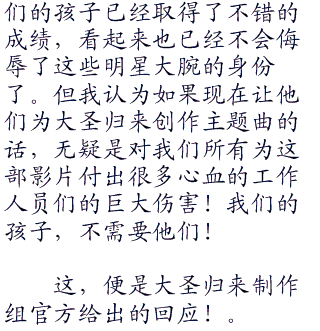 们的孩子已经取得了不错的
成绩，看起来也已经不会侮
辱了这些明星大腕的身份
了。但我认为如果现在让他
们为大圣归来创作主题曲的
话，无疑是对我们所有为这
部影片付出很多心血的工作
人员们的巨大伤害！我们的
孩子，不需要他们！
这，便是大圣归来制作
组官方给出的回应！。